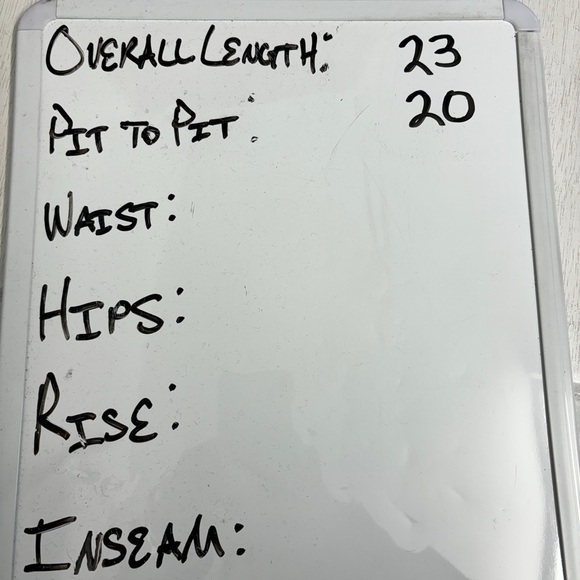 OVERALL LENGTH: 23
PIT TO PIT: 20
WAIST:
HIPS:
RISE:
INSEAM: